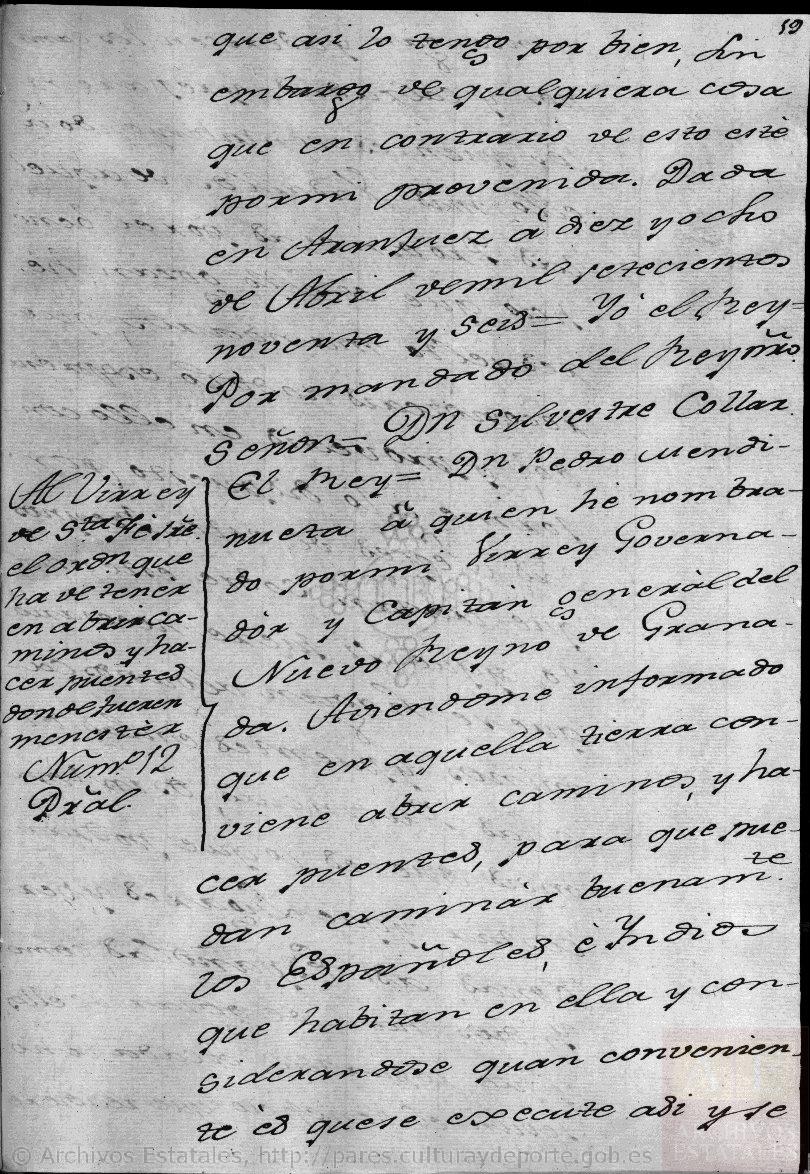 19
que asi lo tengo por bien, sin
embargo de qualquiera cosa
que en contrario de esto estè
pormi prevenida. Dada
en Aranjuez à diez yocho
de Abril demil setecientos
noventa y seis= Yó el Rey=
Por mandado del Rey nr̃o.
Señor= Dn Silvestre Collar.
Al Virrey
de Sta Fé sr̃e.
el ordn que
ha de tener
en abrir ca-
minos y ha-
cer puentes
donde fueren
menester
Num.º 12
Pral.
El Rey= Dn Pedro Mendi-
nueta â quien hé nombra-
do pormi Virrey Governa-
dór y Capitán generàl del
Nuevo Reyno de Grana-
da. Aviendome informado
que en aquella tierra con-
viene abrir caminos, y ha-
cer puentes, para que pue-
dan caminàr buenamte.
los Españoles, è Yndios
que habitan en ella y con-
siderandose quan convenien-
te ès quese execute asi y se
© Archivos Estatales, http://pares.culturaydeporte.gob.es
ARCHIVOS
ESTATALES